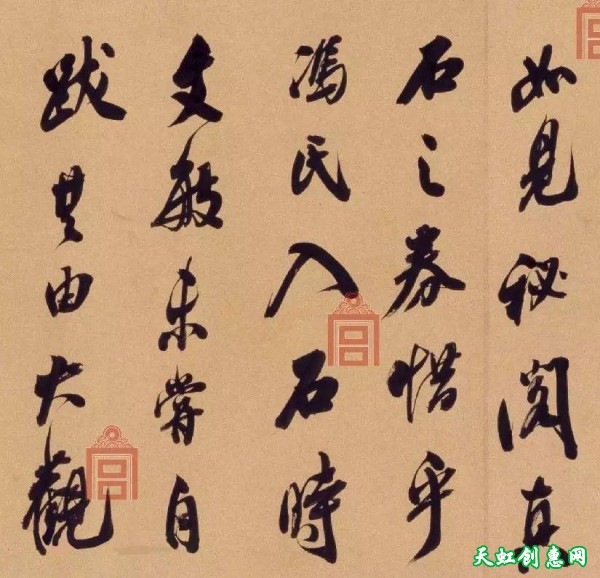 如見秘閣真
石之券惜乎
馮氏入石時
文敏未嘗自
跋其由大觀
天虹创惠网